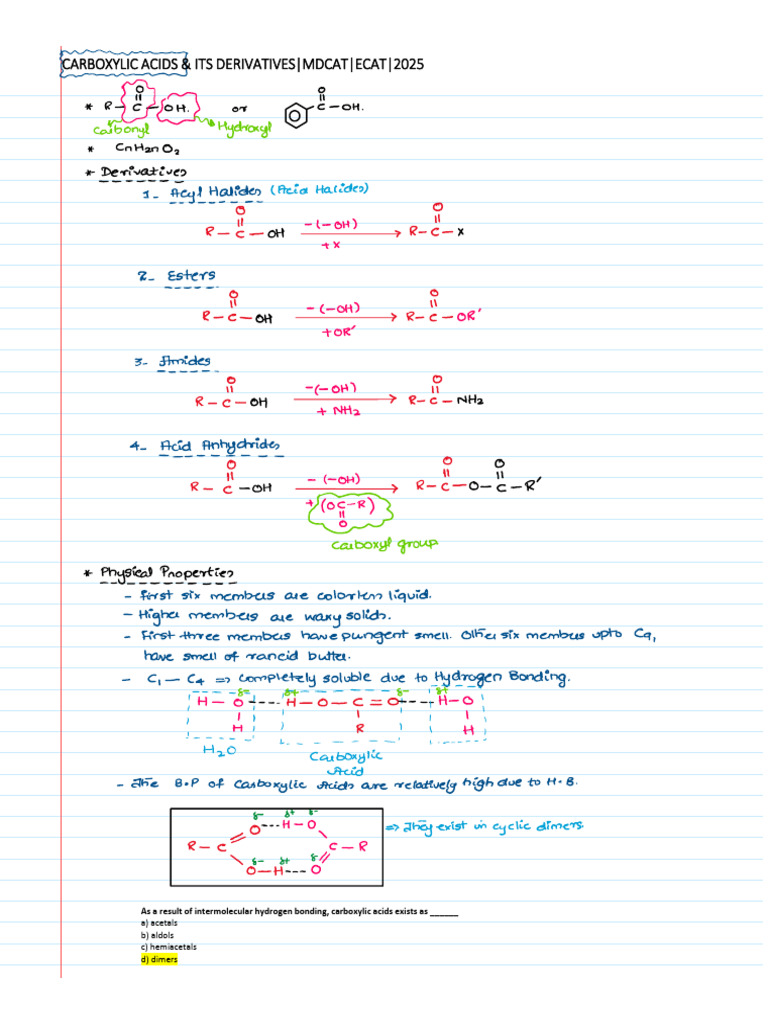 CARBOXYLIC ACIDS & ITS DERIVATIVES|MDCAT|ECAT|2025
O O
* R — C — OH. or C — OH.
Carbonyl Hydroxyl
* CnH2nO2
* Derivatives
1- Acyl Halides (Acid Halides)
O O
R — C — OH -(-OH) + X R — C — X
2- Esters
O O
R — C — OH -(-OH) + OR' R — C — OR'
3- Amides
O O
R — C — OH -(-OH) + NH2 R — C — NH2
4- Acid Anhydrides
O O O
R — C — OH -(-OH) R — C — O — C — R'
+ (OC-R)
O
Carboxyl group
* Physical Properties
- First six members are colorless liquid.
- Higher members are waxy solids.
- First three members have pungent smell. Other six members upto C9,
have smell of rancid butter.
- C1 — C4 => completely soluble due to Hydrogen Bonding.
δ- δ+ δ- δ+
H — O ---- H — O — C = O ---- H — O
H R H
H2O Carboxylic
Acid
- The B.P of Carboxylic Acids are relatively high due to H.B.
δ- δ+ δ-
O --- H — O => They exist in cyclic dimers.
R — C C — R
δ- δ+ δ-
O — H --- O
As a result of intermolecular hydrogen bonding, carboxylic acids exists as ______
a) acetals
b) aldols
c) hemiacetals
d) dimers